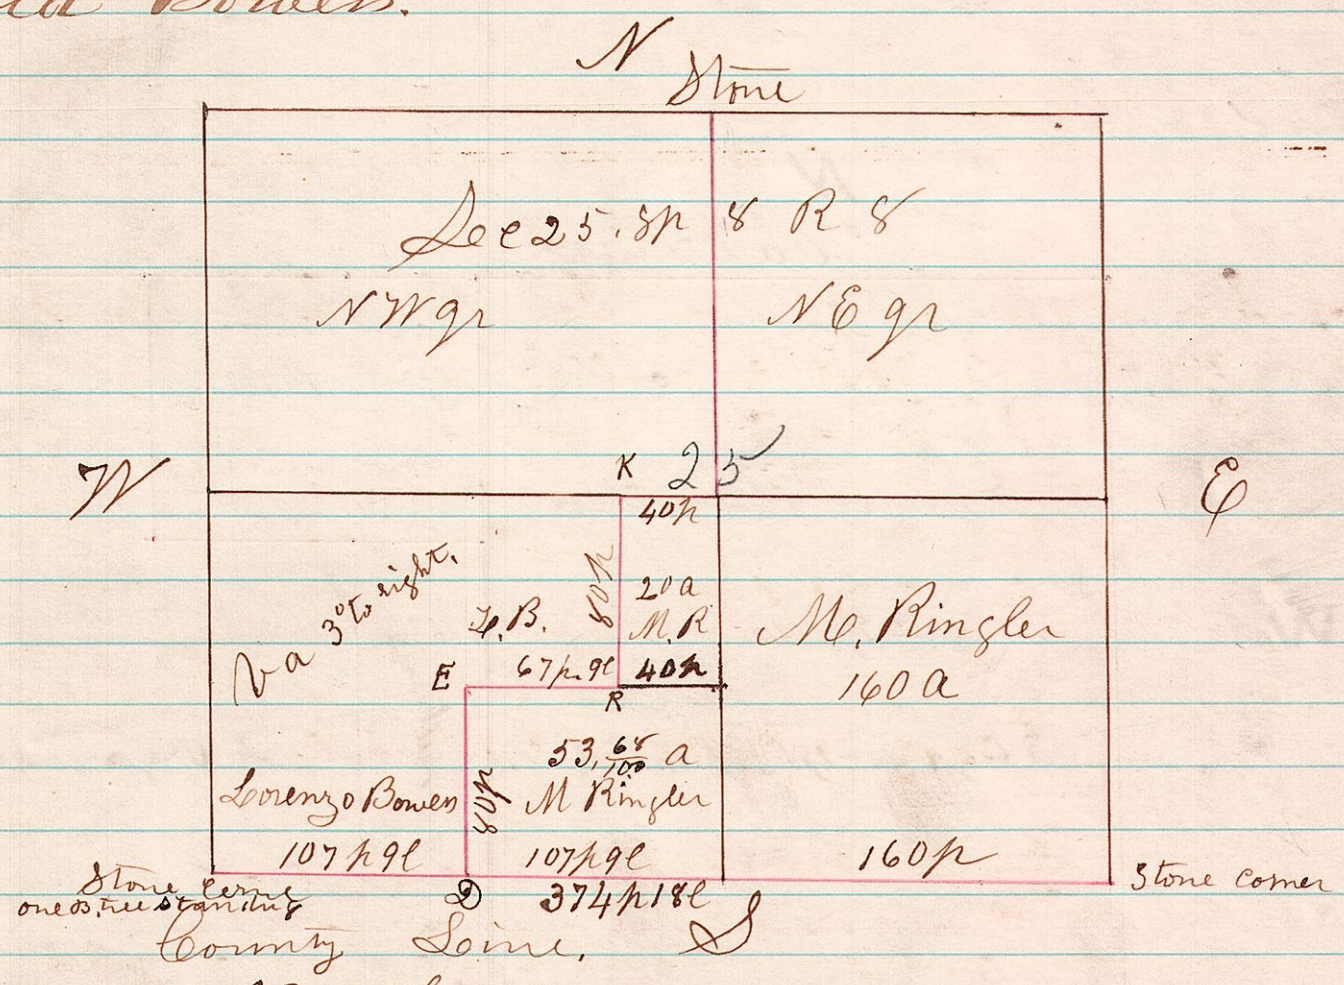 Bowen.
N
Stone
Sec 25. Tp 8 R 8
NW qr
NE qr
W
K
25
E
40p
80p
20 a
M. R
Va 3° to right.
L. B.
M. Ringler
160 a
E
67p. 9l
40p
R
53. 68/100 a
Lorenzo Bowen
80p
M Ringler
107p 9l
107p 9l
160p
Stone
one B. tree standing
D
374p 18l
Stone corner
County Line.
S